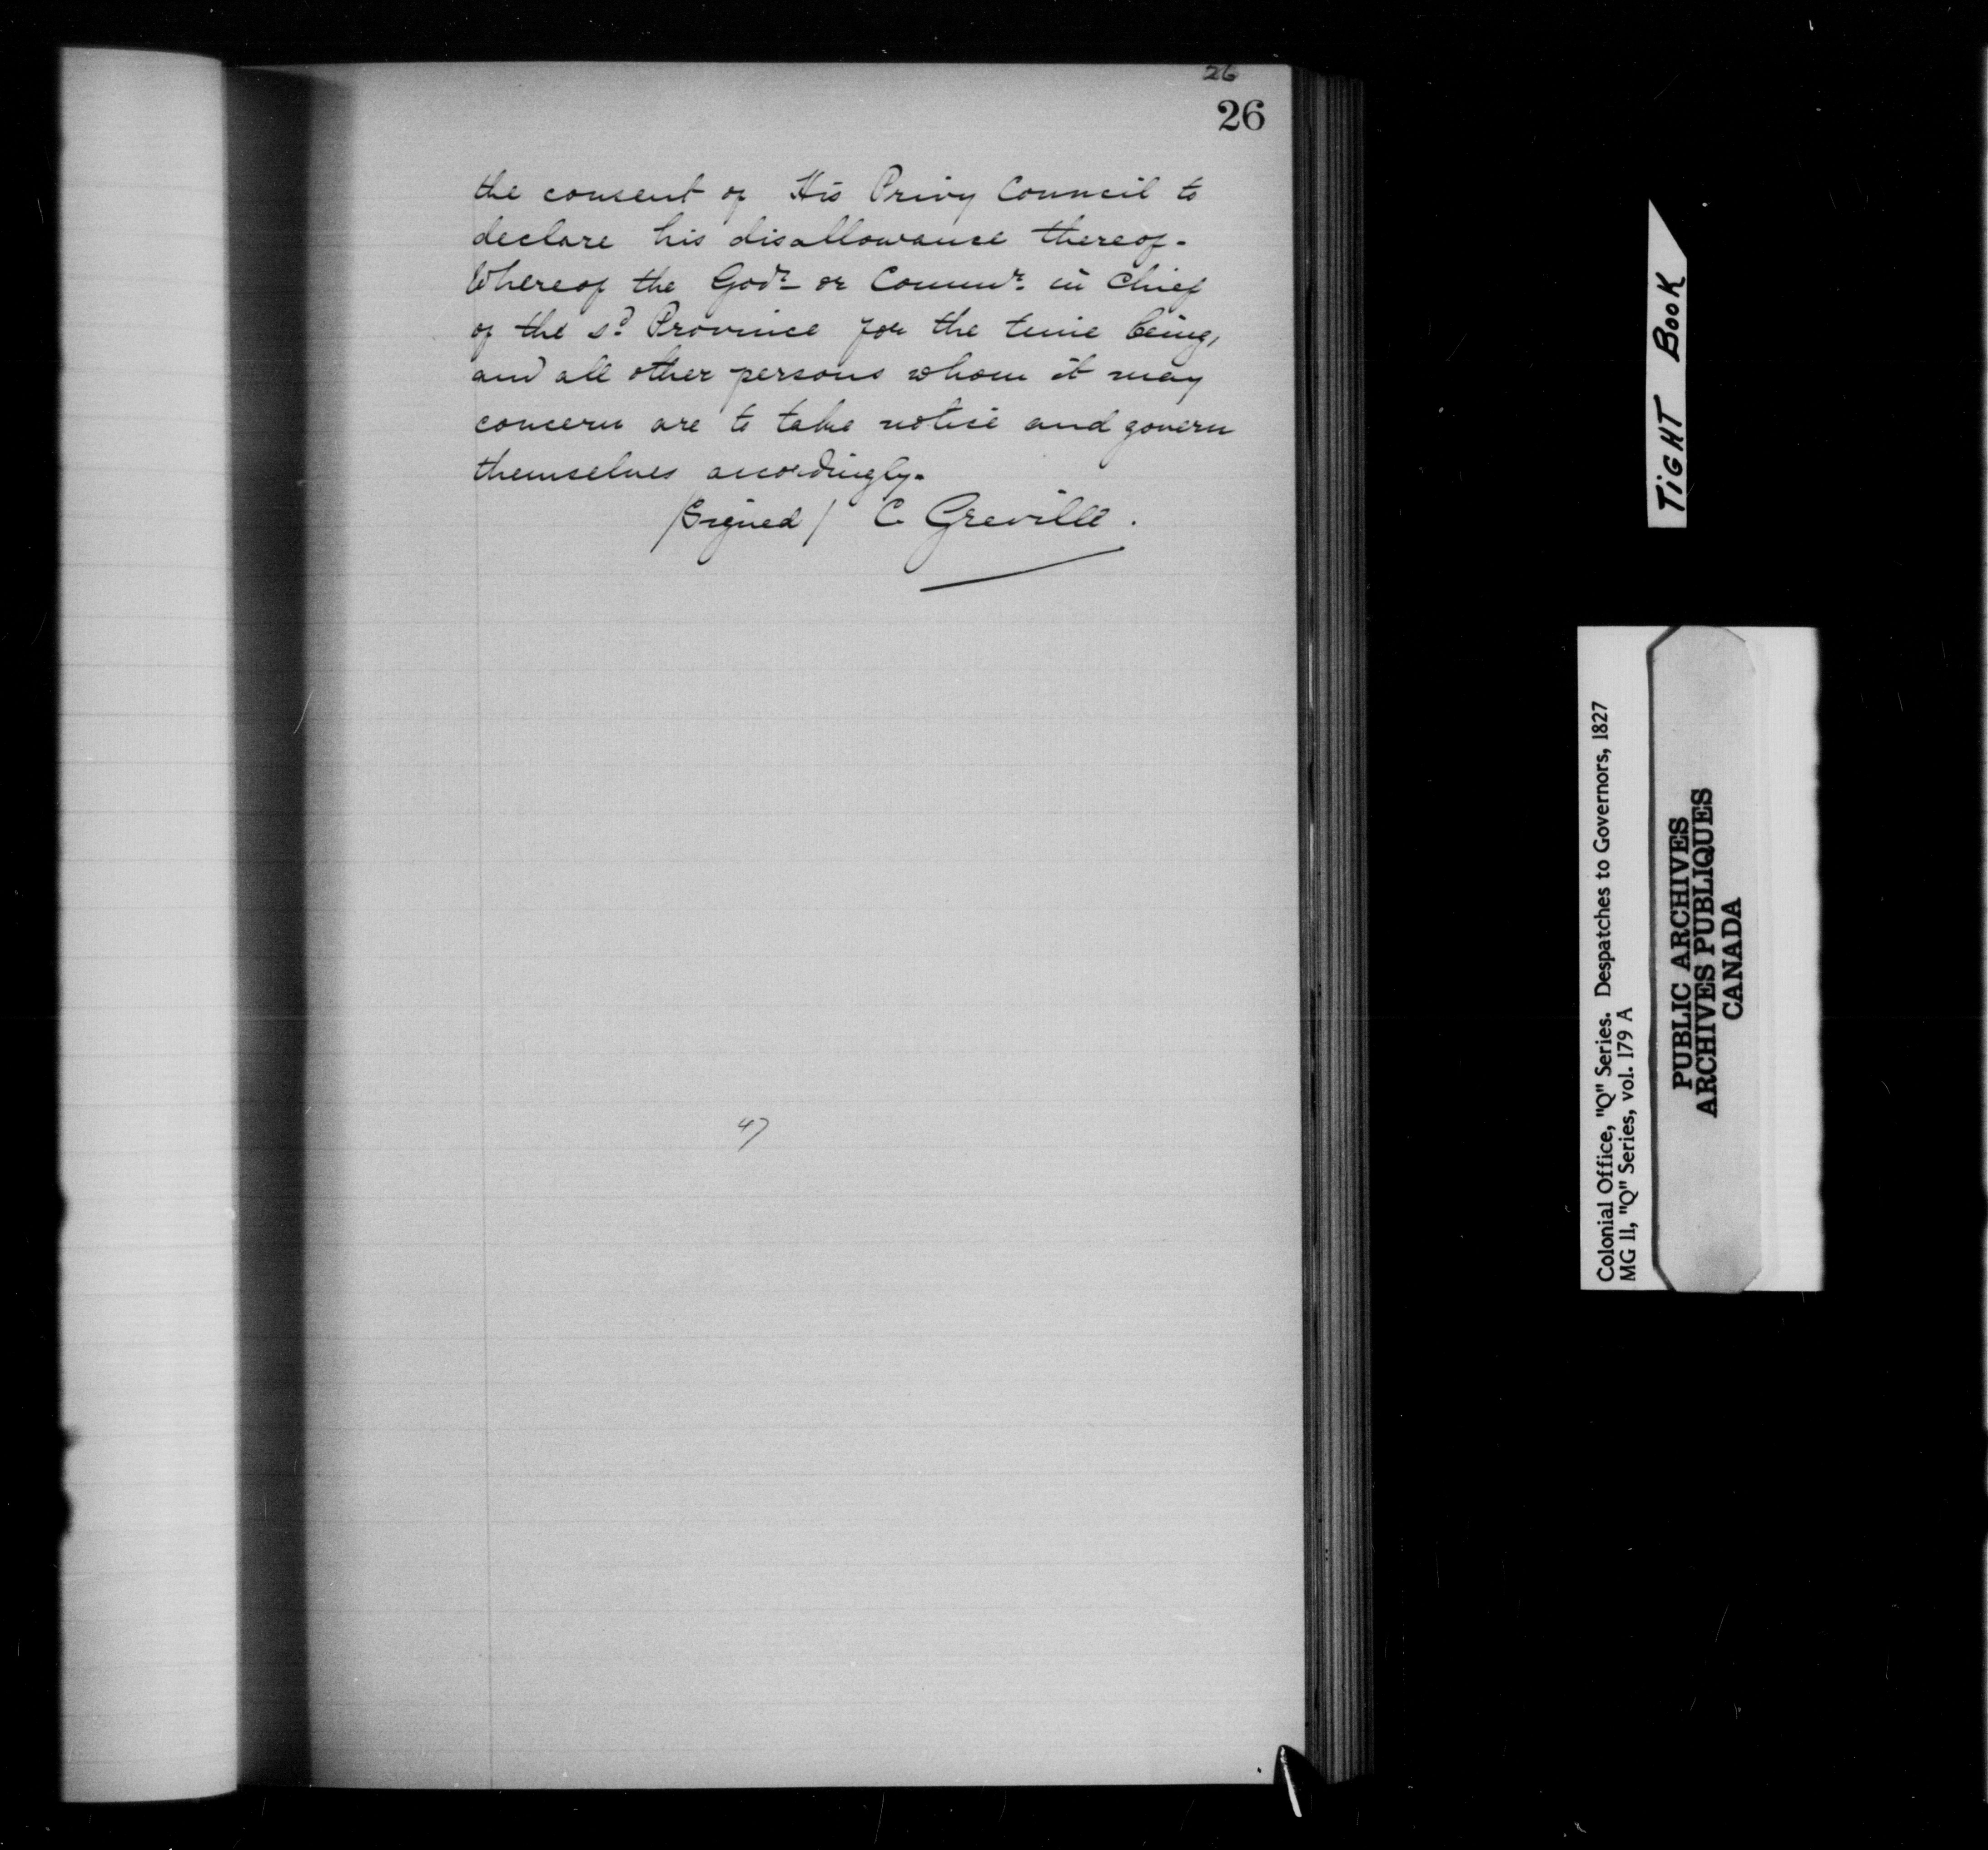 26
26
the consent of His Privy Council to
declare his disallowance thereof.
Whereof the Govr. or Commr. in Chief
of the sd. Province for the time being,
and all other persons whom it may
concern are to take notice and govern
themselves accordingly.
/Signed/ C. Greville.
47
TIGHT BOOK
Colonial Office, "Q" Series. Despatches to Governors, 1827
MG 11, "Q" Series, vol. 179 A
PUBLIC ARCHIVES
ARCHIVES PUBLIQUES
CANADA